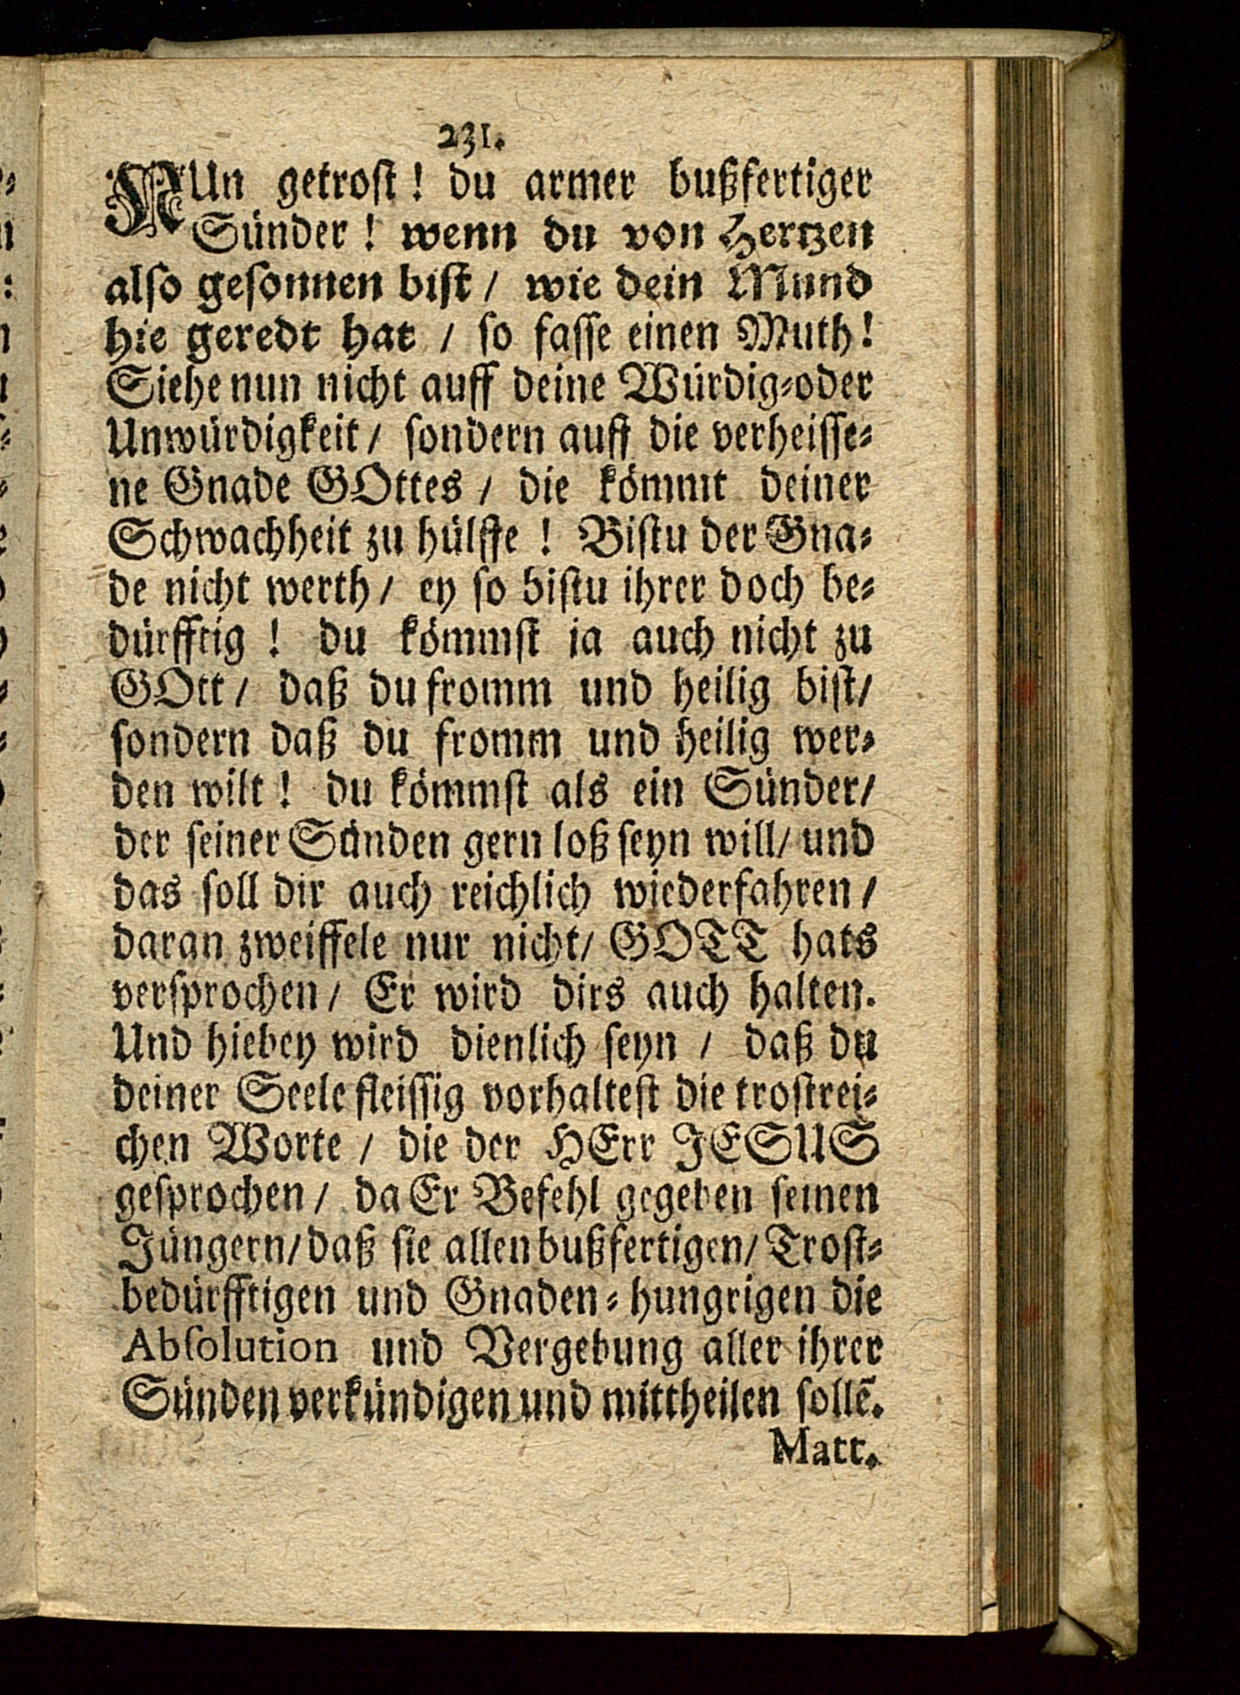 231.
NUn getrost! du armer bußfertiger
Sünder! wenn du von Hertzen
also gesonnen bist/ wie dein Mund
hie geredt hat / so fasse einen Muth!
Siehe nun nicht auff deine Würdig-oder
Unwürdigkeit/ sondern auff die verheisse-
ne Gnade GOttes / die kömmt deiner
Schwachheit zu hülffe! Bistu der Gna-
de nicht werth/ ey so bistu ihrer doch be-
dürfftig! du kömmst ja auch nicht zu
GOtt/ daß du fromm und heilig bist/
sondern daß du fromm und heilig wer-
den wilt! du kömmst als ein Sünder/
der seiner Sünden gern loß seyn will/ und
das soll dir auch reichlich wiederfahren/
daran zweiffele nur nicht/ GOTT hats
versprochen/ Er wird dirs auch halten.
Und hiebey wird dienlich seyn / daß du
deiner Seele fleissig vorhaltest die trostrei-
chen Worte / die der HErr JESUS
gesprochen/ da Er Befehl gegeben seinen
Jüngern/ daß sie allen bußfertigen/ Trost-
bedürfftigen und Gnaden-hungrigen die
Absolution und Vergebung aller ihrer
Sünden verkündigen und mittheilen sollē.
Matt.